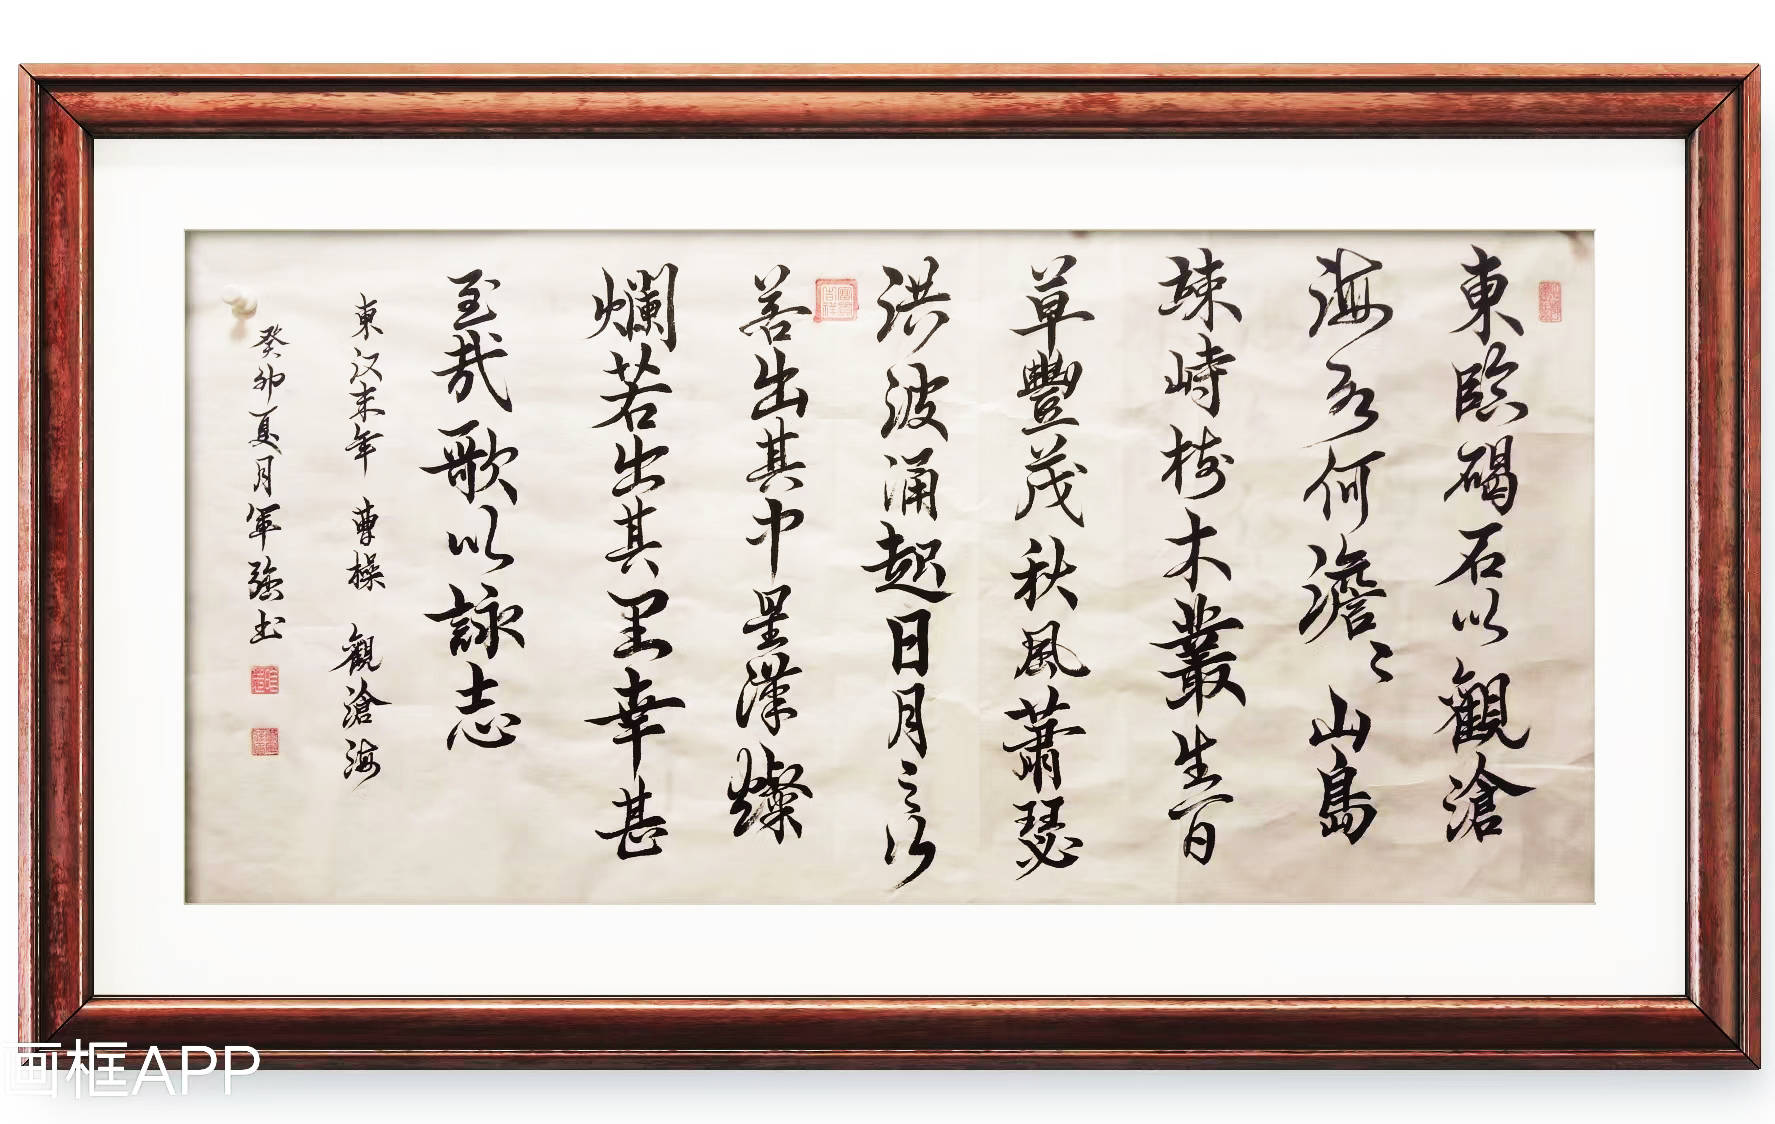 東臨碣石以觀滄
海水何澹々山島
竦峙樹木叢生百
草豐茂秋風蕭瑟
洪波涌起日月之行
若出其中星漢燦
爛若出其里幸甚
至哉歌以詠志
東汉末年 曹操 觀滄海
癸卯夏月軍强书
画框APP